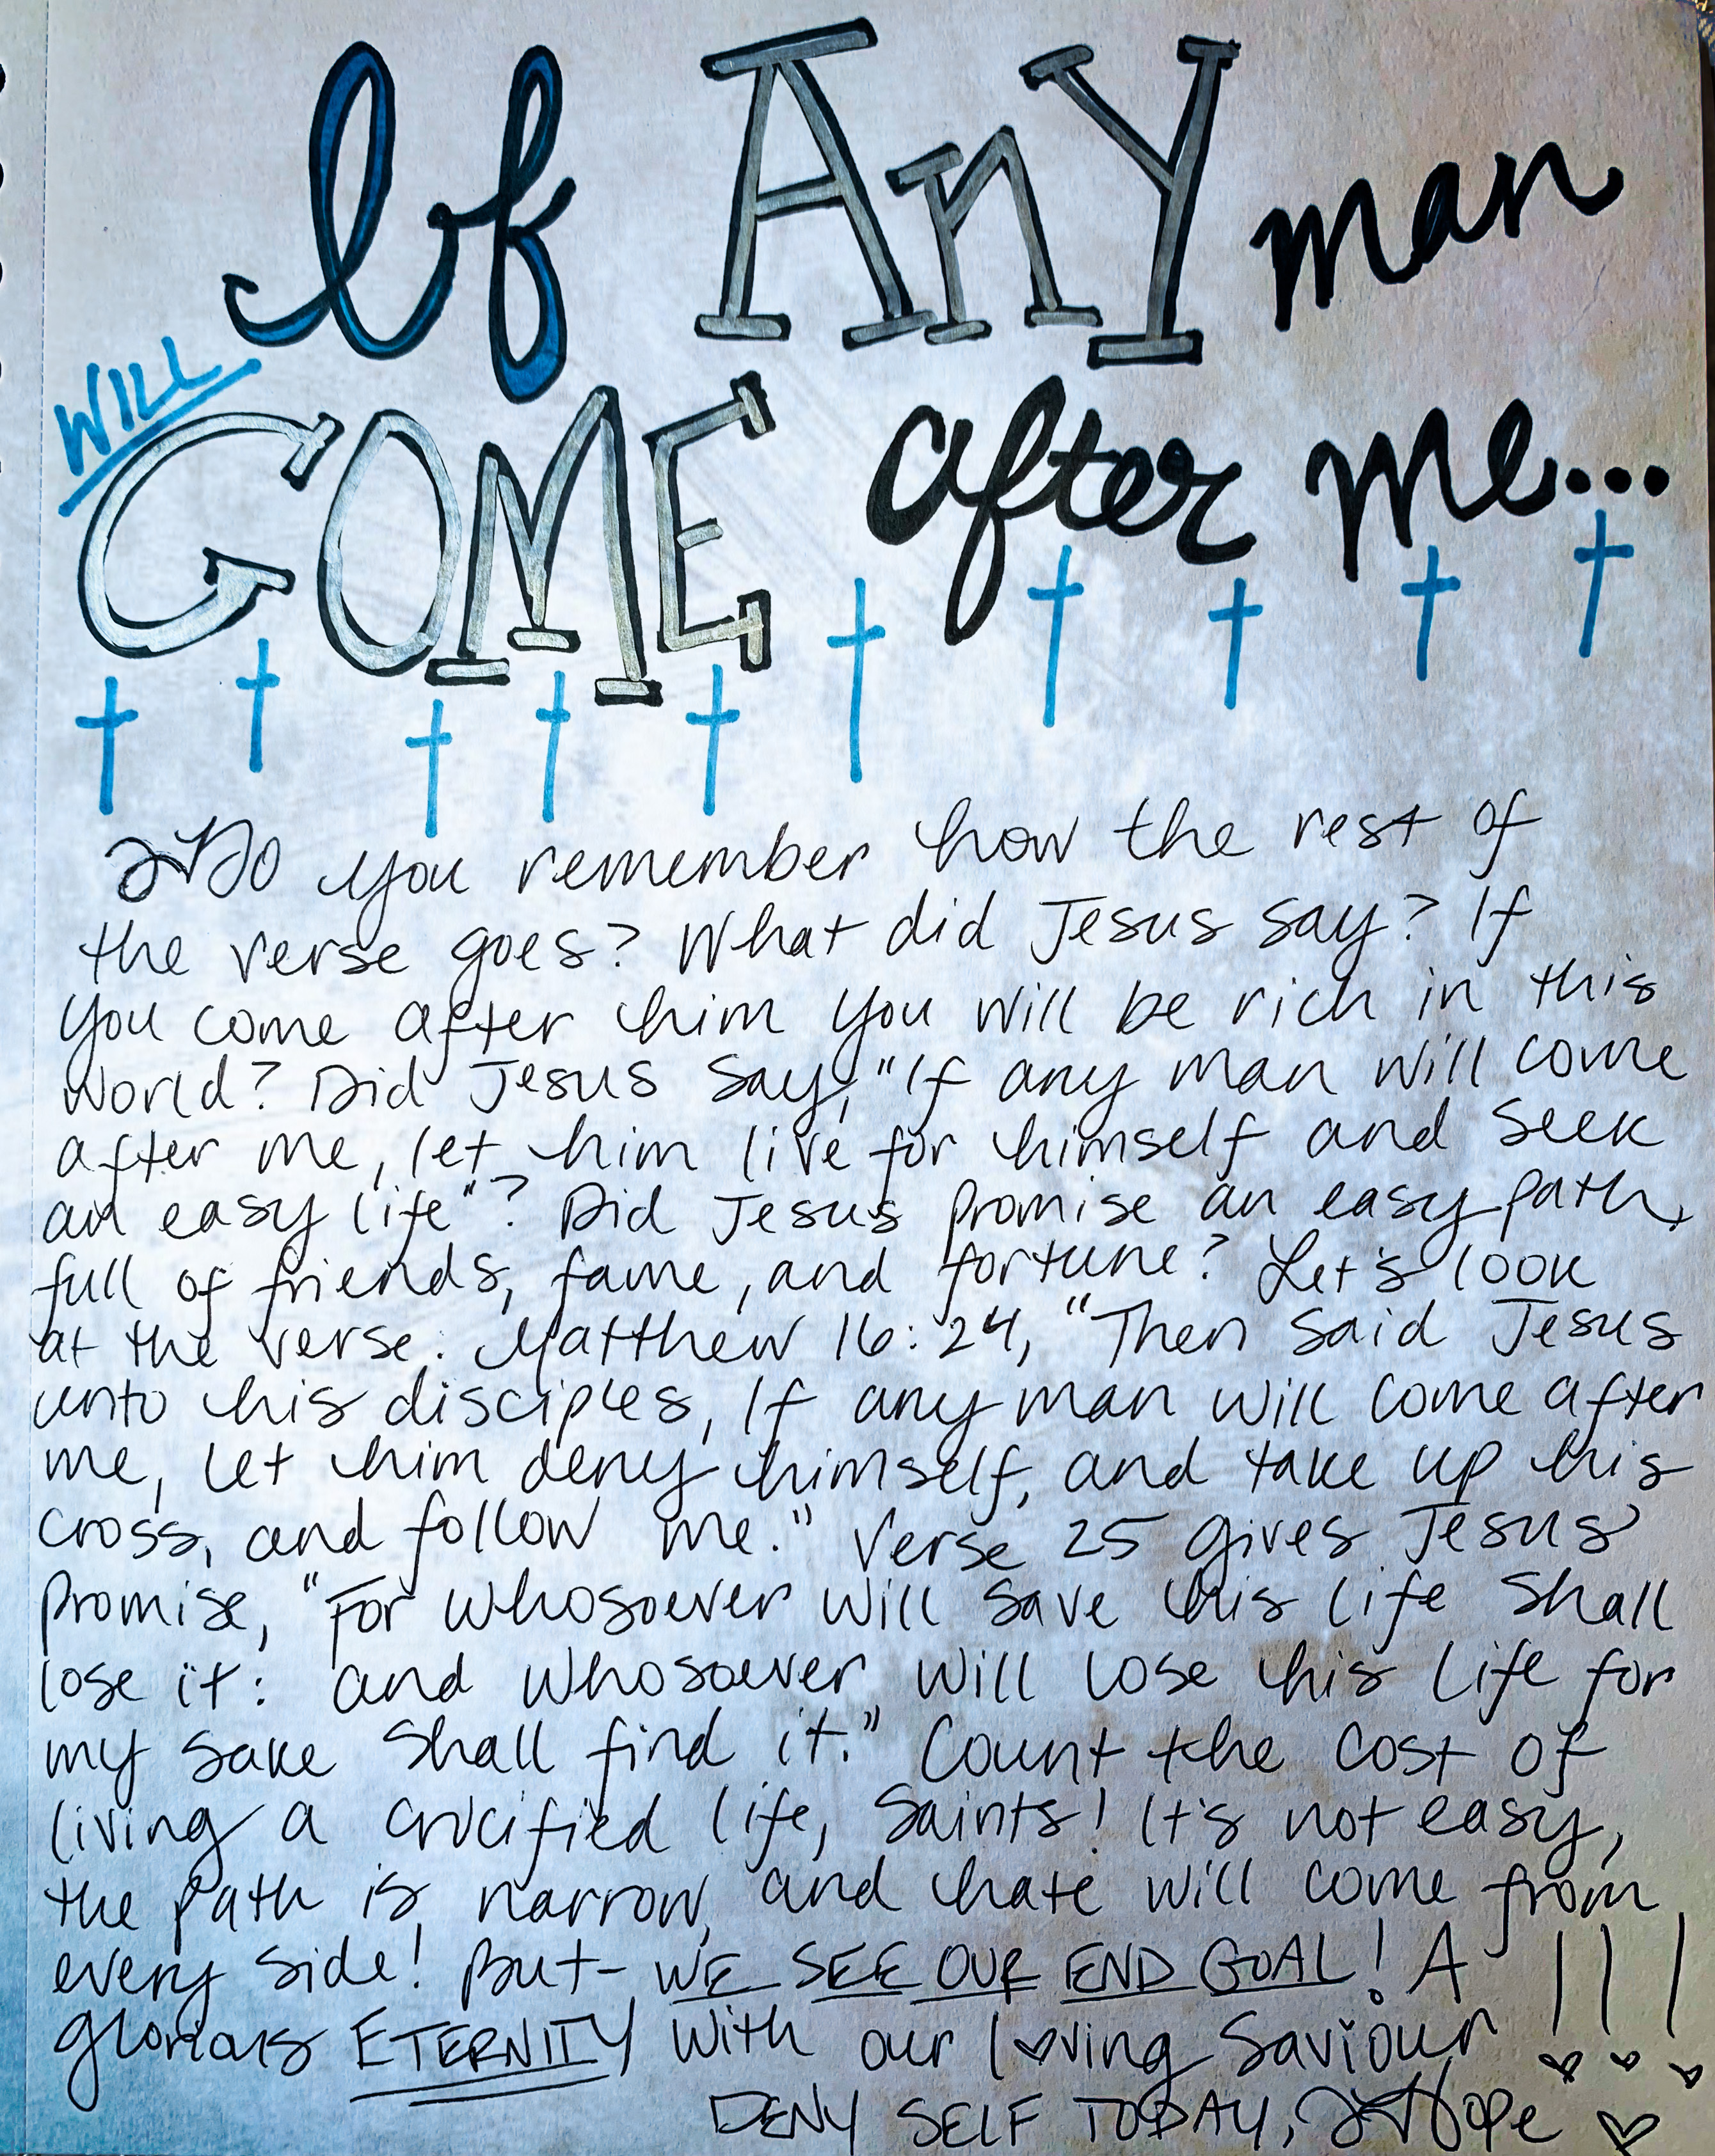 If AnY man
WILL
COME after me...
Do you remember how the rest of
the verse goes? What did Jesus say? If
you come after him you will be rich in this
world? Did Jesus say, "If any man will come
after me, let him live for himself and seek
an easy life"? Did Jesus promise an easy path,
full of friends, fame, and fortune? Let's look
at the verse. Matthew 16:24, "Then said Jesus
unto his disciples, If any man will come after
me, let him deny himself, and take up his
cross, and follow me." Verse 25 gives Jesus'
promise, "For whosoever will save his life shall
lose it: and whosoever will lose his life for
my sake shall find it." Count the cost of
living a crucified life, Saints! It's not easy,
the path is narrow, and hate will come from
every side! But - WE SEE OUR END GOAL! A
glorious ETERNITY with our loving Saviour!!!
DENY SELF TODAY, Hope